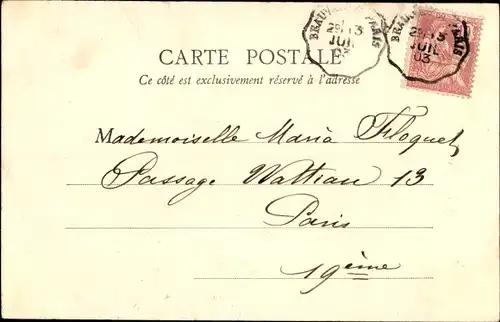 BEAUV
PARIS
29 13
JUIL
03
BEAUV
PARIS
29 13
JUIL
03
CARTE POSTALE
Ce côté est exclusivement réservé à l'adresse
Mademoiselle Maria Floquet
Passage Wattiau 13
Paris
19ème